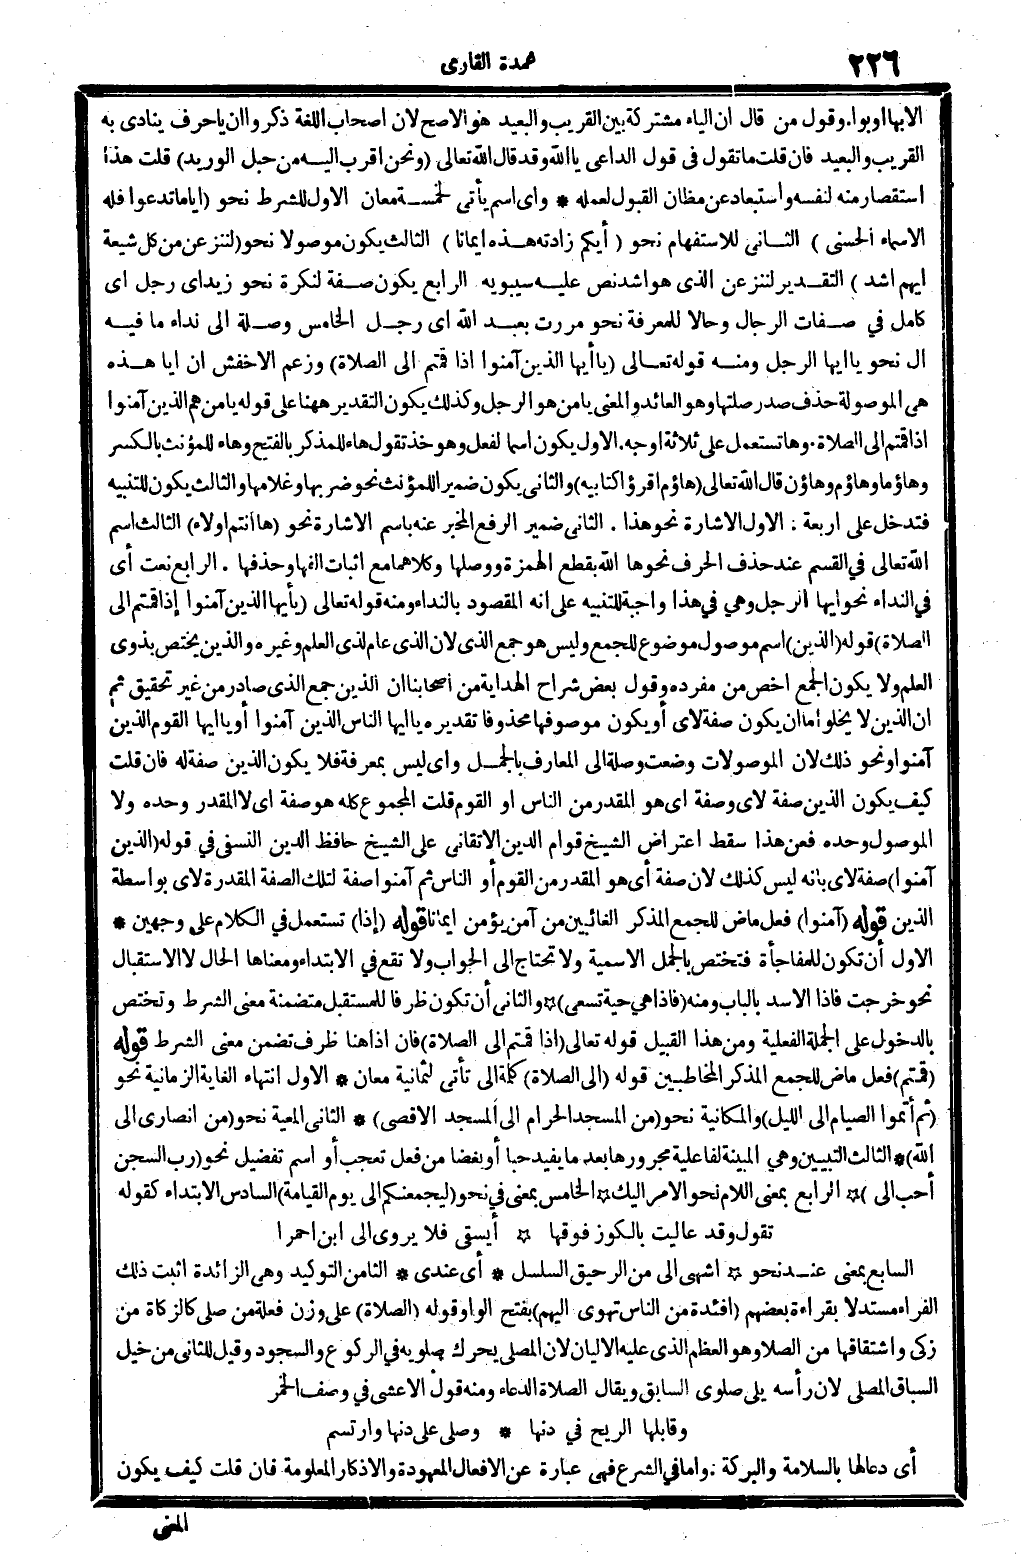 ٢٢٦
عمدة القارى
الابها اوبوا. وقول من قال ان الياء مشتركة بين القريب والبعيد هو الاصح لان اصحاب اللغة ذكروا ان يا حرف ينادى به
القريب والبعيد فان قلت ما تقول فى قول الداعى يا الله وقد قال الله تعالى (ونحن اقرب اليه من حبل الوريد) قلت هذا
استقصار منه لنفسه واستبعاد عن مظان القبول لعمله * واى اسم يأتى لخمسة معان الاول للشرط نحو (اياما تدعوا فله
الاسماء الحسنى) الثانى للاستفهام نحو (أيكم زادته هذه ايمانا) الثالث يكون موصولا نحو (لننزعن من كل شيعة
ايهم اشد) التقدير لننزعن الذى هو اشد نص عليه سيبويه الرابع يكون صفة لنكرة نحو زيد اى رجل اى
كامل في صفات الرجال وحالا للمعرفة نحو مررت بعبد الله اى رجل الخامس وصلة الى نداء ما فيه
ال نحو يا ايها الرجل ومنه قوله تعالى (يا أيها الذين آمنوا اذا قمتم الى الصلاة) وزعم الاخفش ان ايا هذه
هى الموصولة حذف صدر صلتها وهو العائد والمعنى يا من هو الرجل وكذلك يكون التقدير ههنا على قوله يا من هم الذين آمنوا
اذا قمتم الى الصلاة. وها تستعمل على ثلاثة اوجه. الاول يكون اسما لفعل وهو خذ تقول هاء للمذكر بالفتح وهاء للمؤنث بالكسر
وهاؤما وهاؤم وهاؤن قال الله تعالى (هاؤم اقرؤا كتابيه) والثانى يكون ضمير اللمؤنث نحو ضربها وغلامها والثالث يكون للتنبيه
فتدخل على اربعة : الاول الاشارة نحو هذا . الثانى ضمير الرفع المخبر عنه باسم الاشارة نحو (ها انتم اولاء) الثالث اسم
الله تعالى في القسم عند حذف الحرف نحو ها الله بقطع الهمزة ووصلها وكلاهما مع اثبات الفها وحذفها . الرابع نعت أى
في النداء نحو ايها الرجل وهي في هذا واجبة للتنبيه على انه المقصود بالنداء ومنه قوله تعالى (يأيها الذين آمنوا إذا قمتم الى
الصلاة) قوله (الذين) اسم موصول موضوع للجمع وليس هو جمع الذى لان الذى عام لذى العلم وغيره والذين يختص بذوى
العلم ولا يكون الجمع اخص من مفرده وقول بعض شراح الهداية من أصحابنا ان الذين جمع الذى صادر من غير تحقيق ثم
ان الذين لا يخلو اما ان يكون صفة لاى أو يكون موصوفها محذوفا تقديره يا ايها الناس الذين آمنوا أو يا ايها القوم الذين
آمنوا ونحو ذلك لان الموصولات وضعت وصلة الى المعارف بالجمل واى ليس بمعرفة فلا يكون الذين صفة له فان قلت
كيف يكون الذين صفة لاى وصفة اى هو المقدر من الناس او القوم قلت المجموع كله هو صفة اى لا المقدر وحده ولا
الموصول وحده فعن هذا سقط اعتراض الشيخ قوام الدين الاتقانى على الشيخ حافظ الدين النسفى في قوله (الذين
آمنوا) صفة لاى بانه ليس كذلك لان صفة أى هو المقدر من القوم أو الناس ثم آمنوا صفة لتلك الصفة المقدرة لاى بواسطة
الذين قوله (آمنوا) فعل ماض للجمع المذكر الغائبين من آمن يؤمن ايمانا قوله (إذا) تستعمل في الكلام على وجهين *
الاول أن تكون للمفاجأة فتختص بالجمل الاسمية ولا تحتاج الى الجواب ولا تقع في الابتداء ومعناها الحال لا الاستقبال
نحو خرجت فاذا الاسد بالباب ومنه (فاذا هي حية تسعى) * والثانى أن تكون ظرفا للمستقبل متضمنة معنى الشرط وتختص
بالدخول على الجملة الفعلية ومن هذا القبيل قوله تعالى (اذا قمتم الى الصلاة) فان اذا هنا ظرف تضمن معنى الشرط قوله
(قمتم) فعل ماض للجمع المذكر المخاطبين قوله (الى الصلاة) كلمة الى تأتى لثمانية معان * الاول انتهاء الغاية الزمانية نحو
(ثم أتموا الصيام الى الليل) والمكانية نحو (من المسجد الحرام الى المسجد الاقصى) * الثانى المعية نحو (من انصارى الى
الله) * الثالث التبيين وهي المبينة لفاعلية مجرورها بعد ما يفيد حبا أو بغضا من فعل تعجب أو اسم تفضيل نحو (رب السجن
أحب الى) * الرابع بمعنى اللام نحو الامر اليك * الخامس بمعنى في نحو (ليجمعنكم الى يوم القيامة) السادس الابتداء كقوله
تقول وقد عاليت بالكوز فوقها * أيستى فلا يروى الى ابن احمرا
السابع بمعنى عند نحو * اشهى الى من الرحيق السلسل * أى عندى * الثامن التوكيد وهى الزائدة اثبت ذلك
الفراء مستدلا بقراءة بعضهم (افئدة من الناس تهوى اليهم) بفتح الواو قوله (الصلاة) على وزن فعلة من صلى كالزكاة من
زكى واشتقاقها من الصلا وهو العظم الذى عليه الاليان لان المصلى يحرك صلويه في الركوع والسجود وقيل للثانى من خيل
السباق المصلى لان رأسه يلى صلوى السابق ويقال الصلاة الدعاء ومنه قول الاعشى في وصف الخمر
وقابلها الريح في دنها * وصلى على دنها وارتسم
أى دعا لها بالسلامة والبركة : واما في الشرع فهى عبارة عن الافعال المعهودة والاذكار المعلومة فان قلت كيف يكون
المعنى